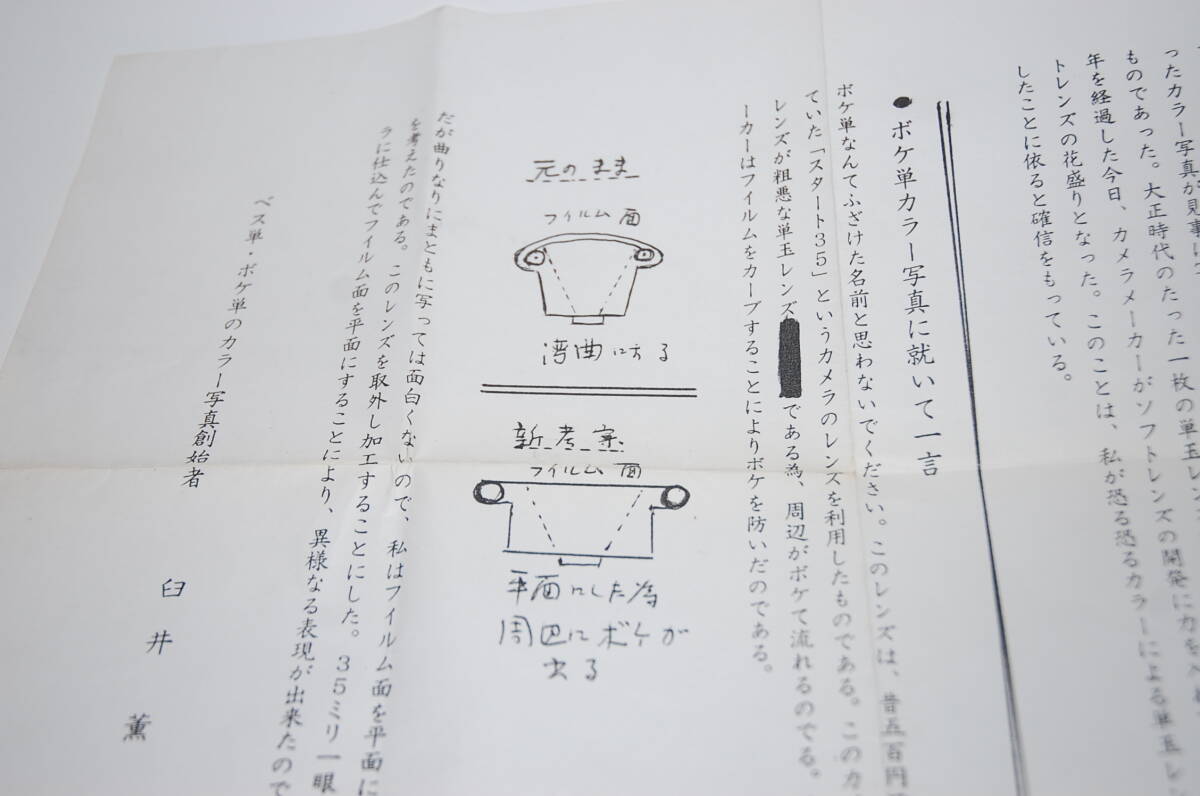 ったカラー写真が見事に
ものであった。大正時代のたった一枚の単玉レ
年を経過した今日、カメラメーカーがソフトレンズの開発に力を
トレンズの花盛りとなった。このことは、私が恐る恐るカラーによる単玉レン
したことに依ると確信をもっている。
●ボケ単カラー写真に就いて一言
ボケ単なんてふざけた名前と思わないでください。このレンズは、昔五百円
ていた「スタート35」というカメラのレンズを利用したものである。このカ
レンズが粗悪な単玉レンズ
である為、周辺がボケて流れるのでる。
ーカーはフイルムをカーブすることによりボケを防いだのである。
元のまま
フイルム面
湾曲にする
新考案
フイルム面
平面にした為
周辺にボケが
出る
だが曲りなりにまともに写っては面白くないので、私はフイルム面を平面に
を考えたのである。このレンズを取外し加工することにした。35ミリ一眼
ラに仕込んでフイルム面を平面にすることにより、異様なる表現が出来たので
ベス単・ボケ単のカラー写真創始者
臼井薫